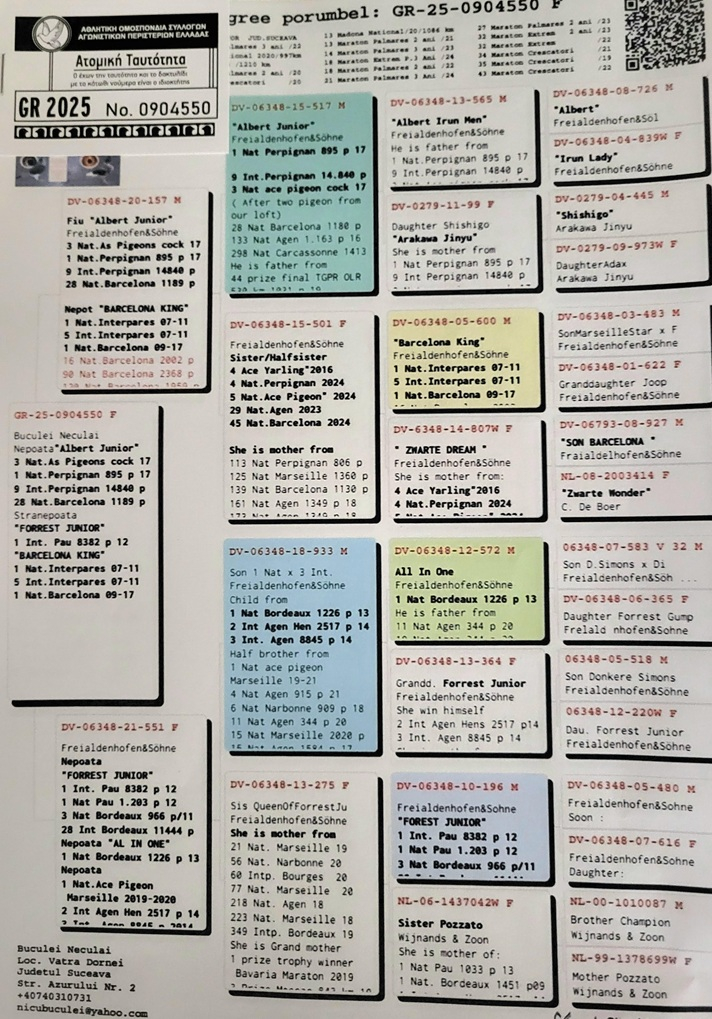 ΑΘΛΗΤΙΚΗ ΟΜΟΣΠΟΝΔΙΑ ΣΥΛΛΟΓΩΝ
ΑΓΩΝΙΣΤΙΚΩΝ ΠΕΡΙΣΤΕΡΙΩΝ ΕΛΛΑΔΟΣ
Ατομική Ταυτότητα
Ο έχων την ταυτότητα και το δακτυλίδι
με το κάτωθι νούμερο είναι ο ιδιοκτήτης
GR 2025 No. 0904550
gree porumbel: GR-25-0904550 F
OR JUD.SUCEAVA
lmares 3 ani /22
ional 2020/997km
/1210 km
lmares 2 ani /20
escatori /20
13 Madona National/20/1086 km
15 Maraton Palmares 2 ani /21
14 Maraton Palmares 3 ani /23
18 Maraton Extrem P.3 ani /24
18 Maraton Palmares 2 ani /22
21 Maraton Palmares 3 Ani /24
27 Maraton Palmares 2 ani /23
32 Maraton Extrem 2 ani /23
32 Maraton Extrem /23
34 Maraton Crescatori /21
35 Maraton Crescatori /19
43 Maraton Crescatori /22
DV-06348-20-157 M
Fiu "Albert Junior"
Freialdenhofen&Söhne
3 Nat.As Pigeons cock 17
1 Nat.Perpignan 895 p 17
9 Int.Perpignan 14840 p
28 Nat.Barcelona 1189 p
Nepot "BARCELONA KING"
1 Nat.Interpares 07-11
5 Int.Interpares 07-11
1 Nat.Barcelona 09-17
16 Nat.Barcelona 2002 p
90 Nat.Barcelona 2368 p
GR-25-0904550 F
Buculei Neculai
Nepoata"Albert Junior"
3 Nat.As Pigeons cock 17
1 Nat.Perpignan 895 p 17
9 Int.Perpignan 14840 p
28 Nat.Barcelona 1189 p
Stranepoata
"FORREST JUNIOR"
1 Int. Pau 8382 p 12
"BARCELONA KING"
1 Nat.Interpares 07-11
5 Int.Interpares 07-11
1 Nat.Barcelona 09-17
DV-06348-21-551 F
Freialdenhofen&Söhne
Nepoata
"FORREST JUNIOR"
1 Int. Pau 8382 p 12
1 Nat Pau 1.203 p 12
3 Nat Bordeaux 966 p/11
28 Int Bordeaux 11444 p
Nepoata "AL IN ONE"
1 Nat Bordeaux 1226 p 13
Nepoata
1 Nat.Ace Pigeon
Marseille 2019-2020
2 Int Agen Hen 2517 p 14
3 Int Agen 8845 p 2014
Buculei Neculai
Loc. Vatra Dornei
Judetul Suceava
Str. Azurului Nr. 2
+40740310731
nicubuculei@yahoo.com
DV-06348-15-517 M
"Albert Junior"
Freialdenhofen&Söhne
1 Nat Perpignan 895 p 17
9 Int.Perpignan 14.840 p
3 Nat ace pigeon cock 17
( After two pigeon from
our loft)
28 Nat Barcelona 1180 p
133 Nat Agen 1.163 p 16
298 Nat Carcassonne 1413
He is father from
44 prize final TGPR OLR
DV-06348-15-501 F
Freialdenhofen&Söhne
Sister/Halfsister
4 Ace Yarling"2016
4 Nat.Perpignan 2024
5 Nat.Ace Pigeon" 2024
29 Nat.Agen 2023
45 Nat.Barcelona 2024
She is mother from
113 Nat Perpignan 806 p
125 Nat Marseille 1360 p
139 Nat Barcelona 1130 p
161 Nat Agen 1349 p 18
173 Nat Agen 1349 p 18
DV-06348-18-933 M
Son 1 Nat x 3 Int.
Freialdenhofen&Söhne
Child from
1 Nat Bordeaux 1226 p 13
2 Int Agen Hen 2517 p 14
3 Int. Agen 8845 p 14
Half brother from
1 Nat ace pigeon
Marseille 19-21
4 Nat Agen 915 p 21
6 Nat Narbonne 909 p 18
11 Nat Agen 344 p 20
15 Nat Marseille 2020 p
15 Nat Agen 1584 p 17
DV-06348-13-275 F
Sis QueenOfForrestJu
Freialdenhofen&Söhne
She is mother from
21 Nat. Marseille 19
56 Nat. Narbonne 20
60 Intp. Bourges 20
77 Nat. Marseille 20
218 Nat. Agen 18
223 Nat. Marseille 18
349 Intp. Bordeaux 19
She is Grand mother
1 prize trophy winner
Bavaria Maraton 2019
DV-06348-13-565 M
"Albert Irun Men"
Freialdenhofen&Söhne
He is father from
1 Nat.Perpignan 895 p 17
9 Int.Perpignan 14840 p
DV-0279-11-99 F
Daughter Shishigo
"Arakawa Jinyu"
She is mother from
1 Nat Perpignan 895 p 17
9 Int Perpignan 14840 p
DV-06348-05-600 M
"Barcelona King"
Freialdenhofen&Söhne
1 Nat.Interpares 07-11
5 Int.Interpares 07-11
1 Nat.Barcelona 09-17
DV-6348-14-807W F
" ZWARTE DREAM "
Freialdenhofen&Söhne
She is mother from:
4 Ace Yarling"2016
4 Nat.Perpignan 2024
DV-06348-12-572 M
All In One
Freialdenhofen&Söhne
1 Nat Bordeaux 1226 p 13
He is father from
11 Nat Agen 344 p 20
DV-06348-13-364 F
Grandd. Forrest Junior
Freialdenhofen&Söhne
She win himself
2 Int Agen Hens 2517 p14
3 Int. Agen 8845 p 14
DV-06348-10-196 M
Freialdenhofen&Söhne
"FOREST JUNIOR"
1 Int. Pau 8382 p 12
1 Nat Pau 1.203 p 12
3 Nat Bordeaux 966 p/11
NL-06-1437042W F
Sister Pozzato
Wijnands & Zoon
She is mother of:
1 Nat Pau 1033 p 13
1 Nat. Bordeaux 1451 p09
DV-06348-08-726 M
"Albert"
Freialdenhofen&Söl
DV-06348-04-839W F
"Irun Lady"
Freialdenhofen&Söhne
DV-0279-04-445 M
"Shishigo"
Arakawa Jinyu
DV-0279-09-973W F
DaughterAdax
Arakawa Jinyu
DV-06348-03-483 M
SonMarseilleStar x F
Freialdenhofen&Söhne
DV-06348-01-622 F
Granddaughter Joop
Freialdenhofen&Söhne
DV-06793-08-927 M
"SON BARCELONA "
Fraialdelhofen&Söhne
NL-08-2003414 F
"Zwarte Wonder"
C. De Boer
06348-07-583 V 32 M
Son D.Simons x Di
Freialdenhofen&Söh ...
DV-06348-06-365 F
Daughter Forrest Gump
Frelald nhofen&Söhne
06348-05-518 M
Son Donkere Simons
Freialdenhofen&Söhne
06348-12-220W F
Dau. Forrest Junior
Freialdenhofen&Söhne
DV-06348-05-480 M
Freialdenhofen&Sohne
Soon :
DV-06348-07-616 F
Freialdenhofen&Sohne
Daughter:
NL-00-1010087 M
Brother Champion
Wijnands & Zoon
NL-99-1378699W F
Mother Pozzato
Wijnands & Zoon